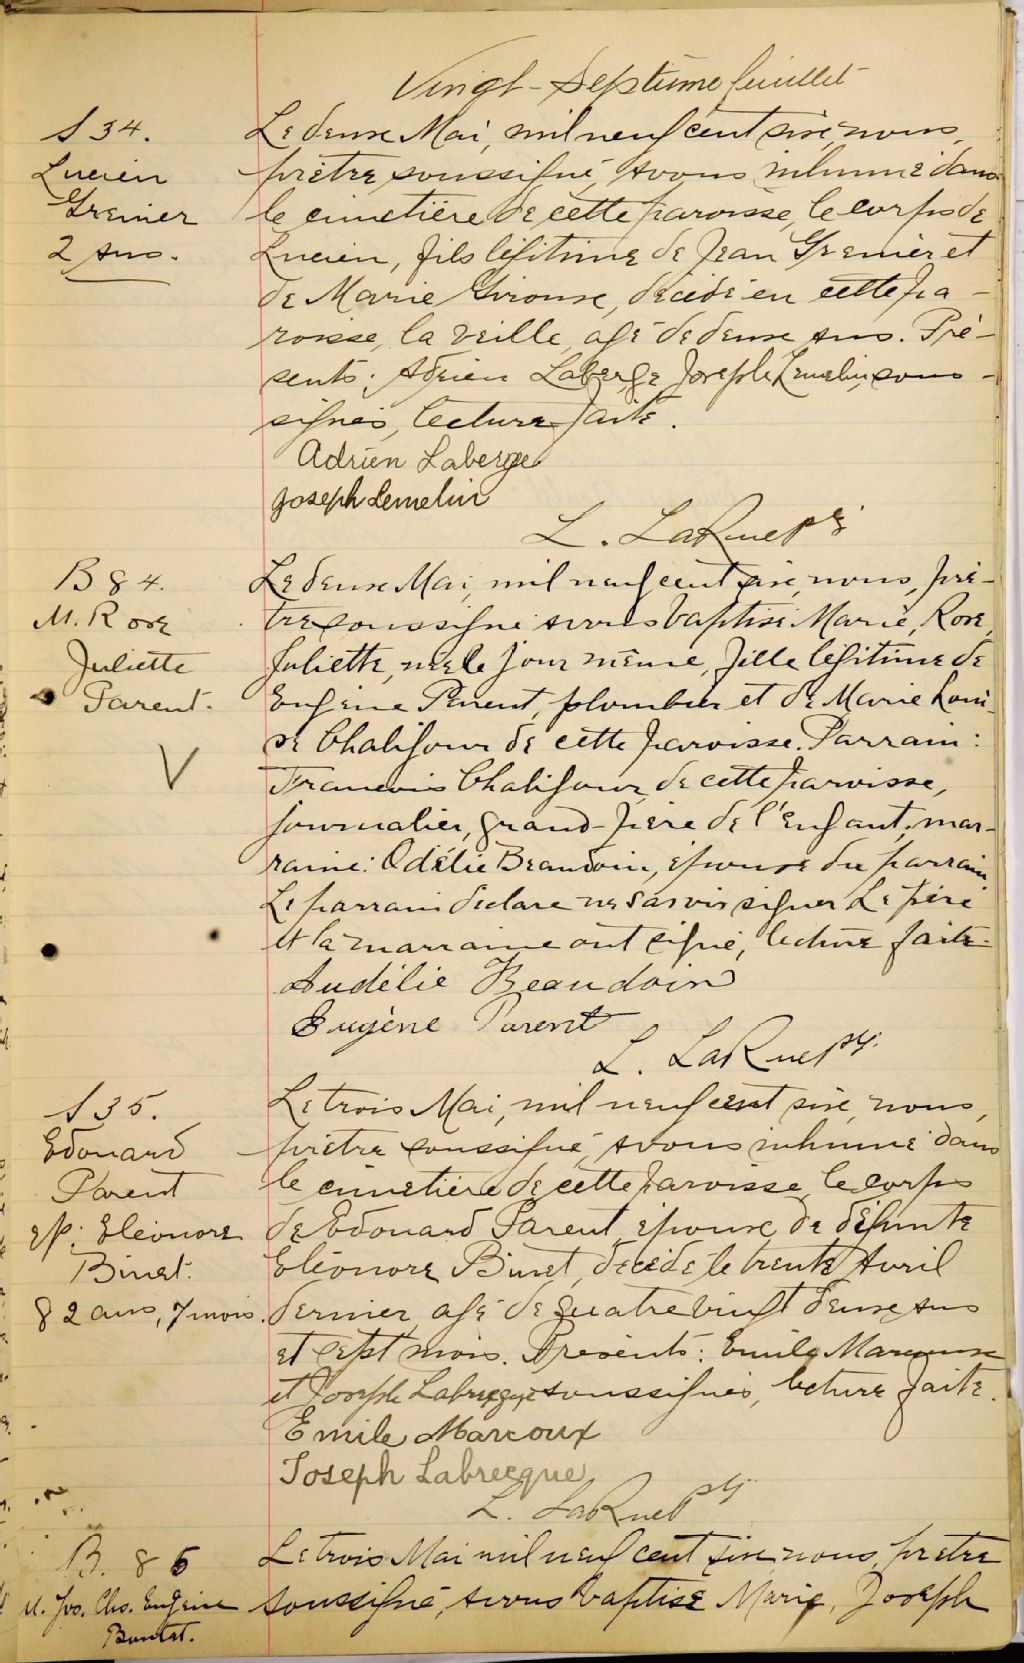 Vingt-Septième feuillet
S 34.
Lucien
Grenier
2 Ans.
Le deux Mai, mil neuf cent six, nous,
prêtre soussigné, avons inhumé dans
le cimetière de cette paroisse, le corps de
Lucien, fils légitime de Jean Grenier et
de Marie Giroux, décédé en cette pa-
roisse, la veille, agé de deux ans. Pré-
sents: Adrien Laberge Joseph Lemelin, sous-
signés, lecture faite.
Adrien Laberge
Joseph Lemelin
L. LaRue ptr
B 84.
M. Rose
Juliette
Parent.
V
Le deux Mai, mil neuf cent six, nous, prê-
tre soussigné avons baptisé Marie, Rose,
Juliette, née le jour même, fille légitime de
Eugène Parent, plombier et de Marie Loui-
se Chalifour de cette paroisse. Parrain:
Francois Chalifour, de cette paroisse,
journalier, grand-père de l'enfant, mar-
raine: Odélie Beaudoin, épouse du parrain.
Le parrain déclare ne savoir signer Le père
et la marraine ont signé, lecture faite.
Audélie Beaudoin
Eugène Parent
L. LaRue ptr.
S 35.
Edouard
Parent
ép: Eléonore
Binet.
82 ans, 7 mois.
Le trois Mai, mil neuf cent six, nous,
prêtre soussigné, avons inhumé dans
le cimetière de cette paroisse, le corps
de Edouard Parent, époux de défunte
Eléonore Binet, décédé le trente Avril
dernier, agé de quatre vingt deux ans
et sept mois. Présents: Emile Marcoux
et Joseph Labrecque soussignés, lecture faite.
Emile Marcoux
Joseph Labrecque
L. LaRue ptr
B. 85
M. Jos. Chs. Eugène
Le trois Mai mil neuf cent six nous, prêtre
soussigné, avons baptisé Marie, Joseph